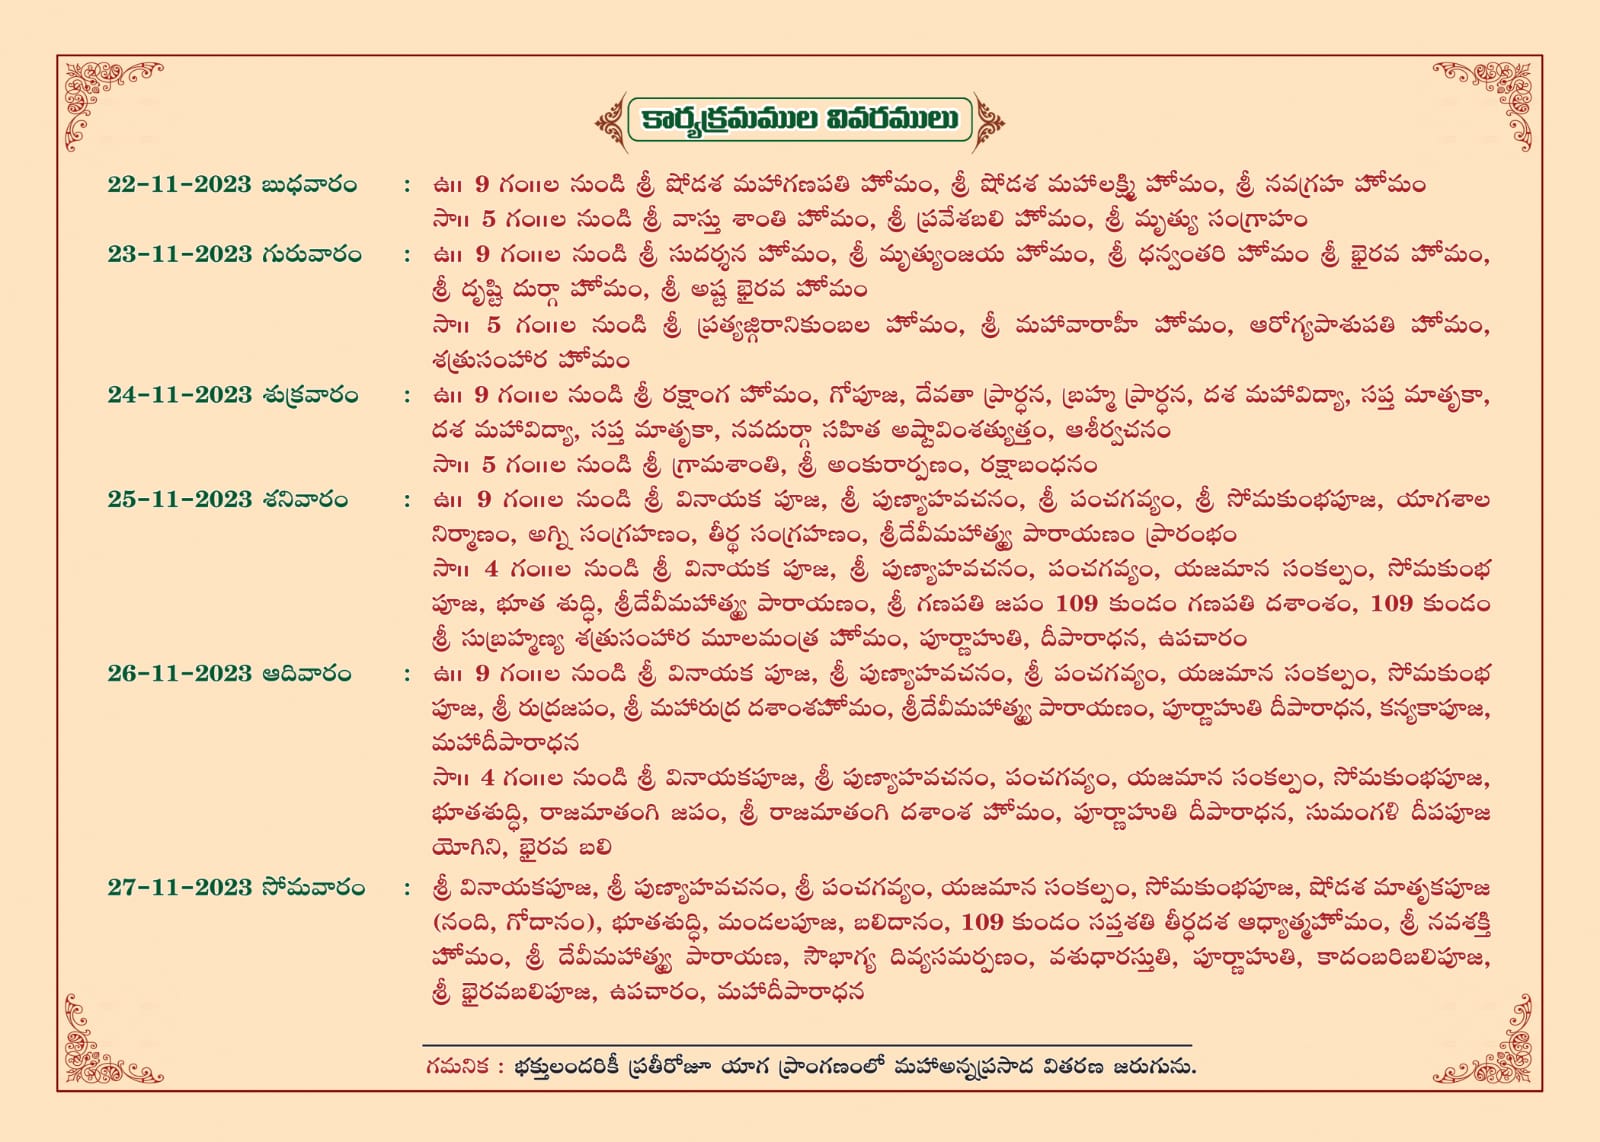 కార్యక్రమముల వివరములు
22-11-2023 బుధవారం : ఉ॥ 9 గం॥ల నుండి శ్రీ షోడశ మహాగణపతి హోమం, శ్రీ షోడశ మహాలక్ష్మి హోమం, శ్రీ నవగ్రహ హోమం
సా॥ 5 గం॥ల నుండి శ్రీ వాస్తు శాంతి హోమం, శ్రీ ప్రవేశబలి హోమం, శ్రీ మృత్యు సంగ్రాహం
23-11-2023 గురువారం : ఉ॥ 9 గం॥ల నుండి శ్రీ సుదర్శన హోమం, శ్రీ మృత్యుంజయ హోమం, శ్రీ ధన్వంతరి హోమం శ్రీ భైరవ హోమం,
శ్రీ దృష్టి దుర్గా హోమం, శ్రీ అష్ట భైరవ హోమం
సా॥ 5 గం॥ల నుండి శ్రీ ప్రత్యజ్గిరానికుంబల హోమం, శ్రీ మహావారాహీ హోమం, ఆరోగ్యపాశుపతి హోమం,
శత్రుసంహార హోమం
24-11-2023 శుక్రవారం : ఉ॥ 9 గం॥ల నుండి శ్రీ రక్షాంగ హోమం, గోపూజ, దేవతా ప్రార్ధన, బ్రహ్మ ప్రార్ధన, దశ మహావిద్యా, సప్త మాతృకా,
దశ మహావిద్యా, సప్త మాతృకా, నవదుర్గా సహిత అష్టావింశత్యుత్తం, ఆశీర్వచనం
సా॥ 5 గం॥ల నుండి శ్రీ గ్రామశాంతి, శ్రీ అంకురార్పణం, రక్షాబంధనం
25-11-2023 శనివారం : ఉ॥ 9 గం॥ల నుండి శ్రీ వినాయక పూజ, శ్రీ పుణ్యాహవచనం, శ్రీ పంచగవ్యం, శ్రీ సోమకుంభపూజ, యాగశాల
నిర్మాణం, అగ్ని సంగ్రహణం, తీర్థ సంగ్రహణం, శ్రీదేవీమహాత్మ్య పారాయణం ప్రారంభం
సా॥ 4 గం॥ల నుండి శ్రీ వినాయక పూజ, శ్రీ పుణ్యాహవచనం, పంచగవ్యం, యజమాన సంకల్పం, సోమకుంభ
పూజ, భూత శుద్ధి, శ్రీదేవీమహాత్మ్య పారాయణం, శ్రీ గణపతి జపం 109 కుండం గణపతి దశాంశం, 109 కుండం
శ్రీ సుబ్రహ్మణ్య శత్రుసంహార మూలమంత్ర హోమం, పూర్ణాహుతి, దీపారాధన, ఉపచారం
26-11-2023 ఆదివారం : ఉ॥ 9 గం॥ల నుండి శ్రీ వినాయక పూజ, శ్రీ పుణ్యాహవచనం, శ్రీ పంచగవ్యం, యజమాన సంకల్పం, సోమకుంభ
పూజ, శ్రీ రుద్రజపం, శ్రీ మహారుద్ర దశాంశహోమం, శ్రీదేవీమహాత్మ్య పారాయణం, పూర్ణాహుతి దీపారాధన, కన్యకాపూజ,
మహాదీపారాధన
సా॥ 4 గం॥ల నుండి శ్రీ వినాయకపూజ, శ్రీ పుణ్యాహవచనం, పంచగవ్యం, యజమాన సంకల్పం, సోమకుంభపూజ,
భూతశుద్ధి, రాజమాతంగి జపం, శ్రీ రాజమాతంగి దశాంశ హోమం, పూర్ణాహుతి దీపారాధన, సుమంగళి దీపపూజ
యోగిని, భైరవ బలి
27-11-2023 సోమవారం : శ్రీ వినాయకపూజ, శ్రీ పుణ్యాహవచనం, శ్రీ పంచగవ్యం, యజమాన సంకల్పం, సోమకుంభపూజ, షోడశ మాతృకపూజ
(నంది, గోదానం), భూతశుద్ధి, మండలపూజ, బలిదానం, 109 కుండం సప్తశతి తీర్ధదశ ఆధ్యాత్మహోమం, శ్రీ నవశక్తి
హోమం, శ్రీ దేవీమహాత్మ్య పారాయణ, సౌభాగ్య దివ్యసమర్పణం, వశుధారస్తుతి, పూర్ణాహుతి, కాదంబరిబలిపూజ,
శ్రీ భైరవబలిపూజ, ఉపచారం, మహాదీపారాధన
గమనిక : భక్తులందరికీ ప్రతీరోజూ యాగ ప్రాంగణంలో మహాఅన్నప్రసాద వితరణ జరుగును.